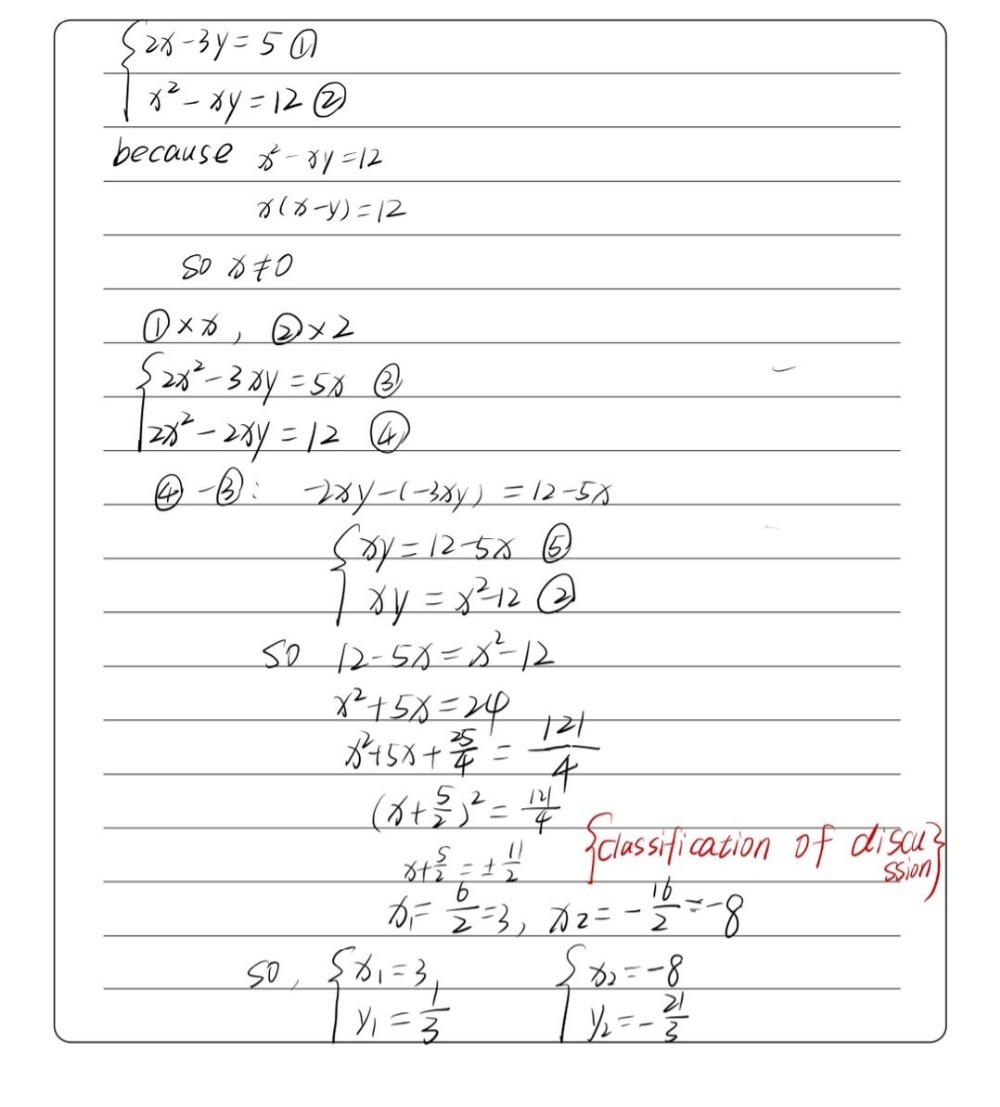 {2x-3y=5 ①
x²-xy=12 ②
because x²-xy=12
x(x-y)=12
so x≠0
①×x, ②×2
{2x²-3xy=5x ③
2x²-2xy=12 ④
④-③: -2xy-(-3xy)=12-5x
{xy=12-5x ⑤
xy=x²-12 ②
so 12-5x=x²-12
x²+5x=24
x²+5x+25/4=121/4
(x+5/2)²=121/4
{classification of discu}
ssion
x+5/2=±11/2
x₁=6/2=3, x₂=-16/2=-8
so, {x₁=3, {x₂=-8
y₁=1/3 y₂=-21/3